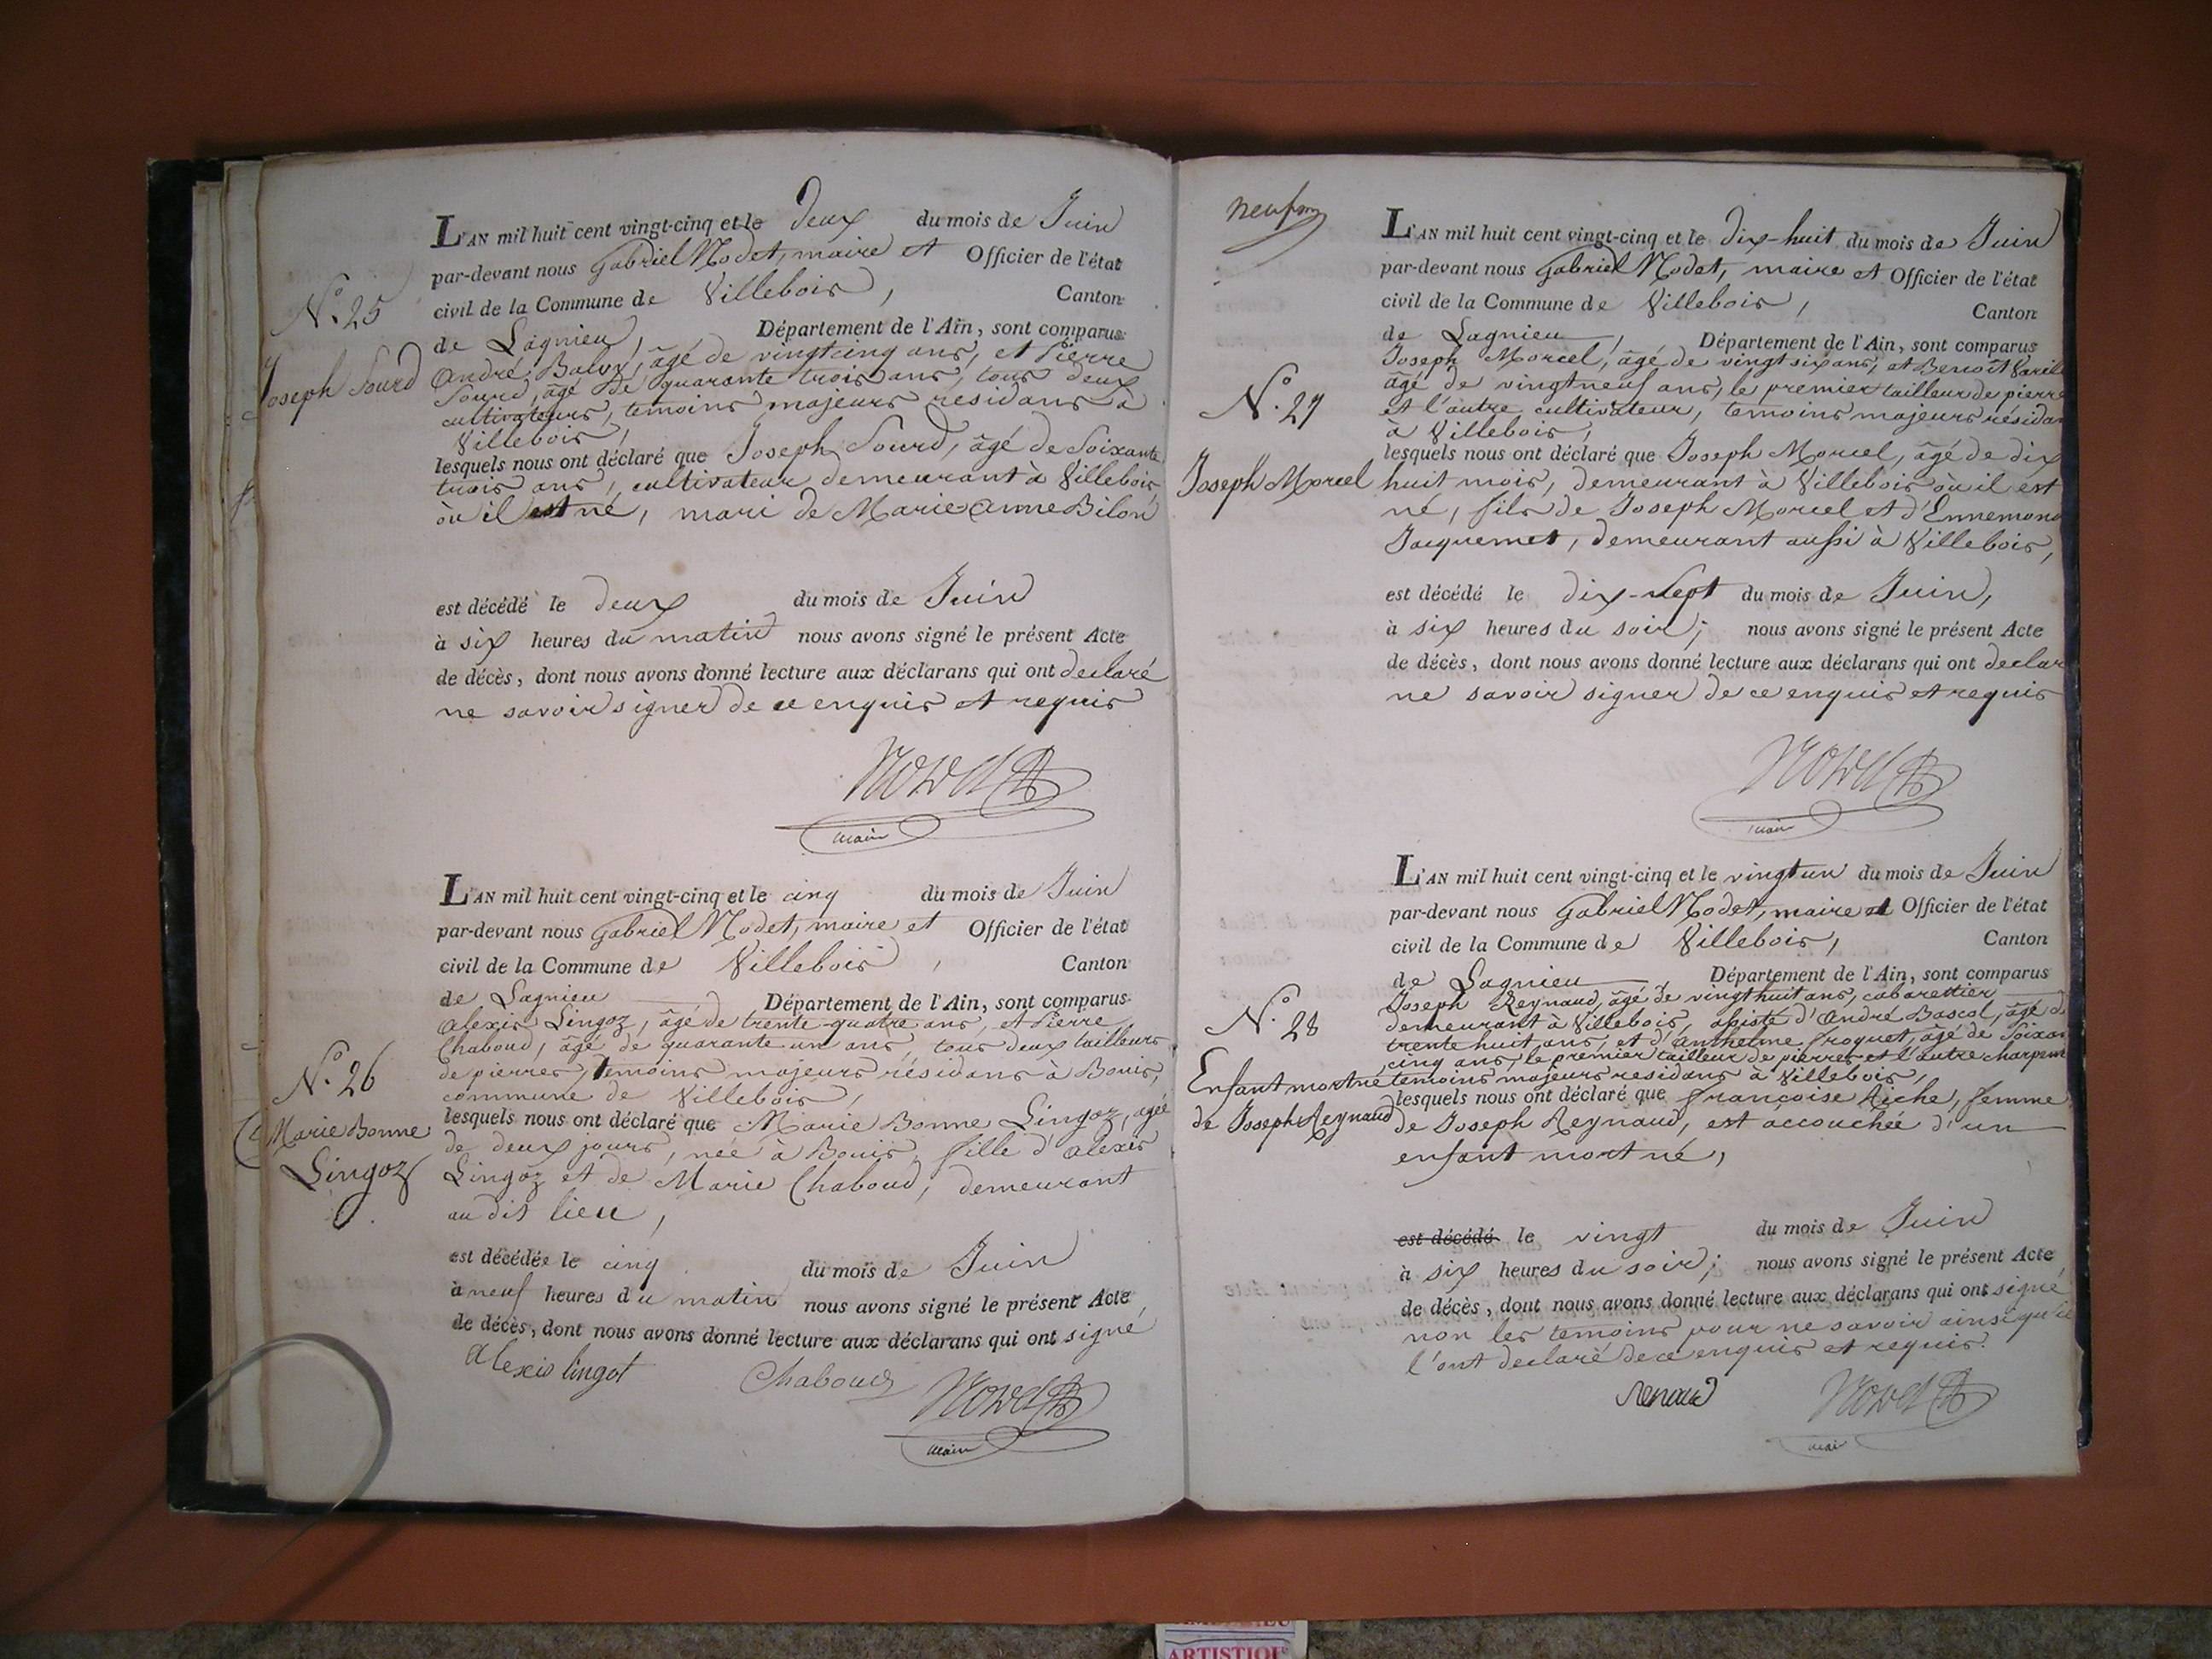 L'AN mil huit cent vingt-cinq et le deux du mois de Juin
par-devant nous Gabriel Modet, maire et Officier de l'état
civil de la Commune de Villebois, Canton
de Lagnieu, Département de l'Ain, sont comparus
N.° 25
Joseph Sourd
André , âgé de vingt cinq ans, et Pierre
Sourd, âgé de quarante trois ans, tous deux
cultivateurs, temoins majeurs residans à
Villebois,
lesquels nous ont déclaré que Joseph Sourd, âgé de Soixante
trois ans, cultivateur demeurant à Villebois
où il est né, mari de Marie Anne Bilon
est décédé le deux du mois de Juin
à six heures du matin nous avons signé le présent Acte
de décès, dont nous avons donné lecture aux déclarans qui ont declaré
ne savoir signer de ce enquis et requis
maire
L'AN mil huit cent vingt-cinq et le cinq du mois de Juin
par-devant nous Gabriel Modet, maire et Officier de l'état
civil de la Commune de Villebois, Canton
de Lagnieu Département de l'Ain, sont comparus
N.° 26
Marie Bonne
Lingoz
Alexis Lingoz, âgé de trente quatre ans, et Pierre
Chaboud, âgé de quarante un ans, tous deux tailleurs
de pierres, temoins majeurs résidans à Bouis,
commune de Villebois,
lesquels nous ont déclaré que Marie Bonne Lingoz, agée
de deux jours, née à Bouis, fille d'Alexis
Lingoz et de Marie Chaboud, demeurant
au dit lieu,
est décédée le cinq du mois de Juin
à neuf heures du matin nous avons signé le présent Acte
de décès, dont nous avons donné lecture aux déclarans qui ont signé
Alexis lingot Chaboud
maire
neuf
L'AN mil huit cent vingt-cinq et le dix-huit du mois de Juin
par-devant nous Gabriel Modet, maire et Officier de l'état
civil de la Commune de Villebois, Canton
de Lagnieu, Département de l'Ain, sont comparus
N.° 27
Joseph Morcel
Joseph Morcel, âgé de vingt six ans, et Benoît
âgé de vingt neuf ans, le premier tailleur de pierre
et l'autre cultivateur, temoins majeurs résidan
à Villebois,
lesquels nous ont déclaré que Joseph Morcel, âgé de dix
huit mois, demeurant à Villebois où il est
né, fils de Joseph Morcel et d'Ennemond
Jacquemet, demeurant aussi à Villebois,
est décédé le dix-sept du mois de Juin,
à six heures du soir; nous avons signé le présent Acte
de décès, dont nous avons donné lecture aux déclarans qui ont declar
ne savoir signer de ce enquis et requis
maire
L'AN mil huit cent vingt-cinq et le vingt un du mois de Juin
par-devant nous Gabriel Modet, maire et Officier de l'état
civil de la Commune de Villebois, Canton
de Lagnieu, Département de l'Ain, sont comparus
N.° 28
Enfant mort né
de Joseph Reynaud
Joseph Reynaud, âgé de vingt huit ans, cabarettier
demeurant à Villebois, assisté d'André Bascol, âgé d
trente huit ans, et d'Anthelme froquet, âgé de Soixan
cinq ans, le premier tailleur de pierres et l'autre charpen
temoins majeurs residans à Villebois,
lesquels nous ont déclaré que françoise Riche, femme
de Joseph Reynaud, est accouchée d'un
enfant mort né,
est décédé le vingt du mois de Juin
à six heures du soir; nous avons signé le présent Acte
de décès, dont nous avons donné lecture aux déclarans qui ont signé
non les temoins pour ne savoir ainsi qu'il
l'ont declaré de ce enquis et requis.
renaud
mai
ARTISTIQU